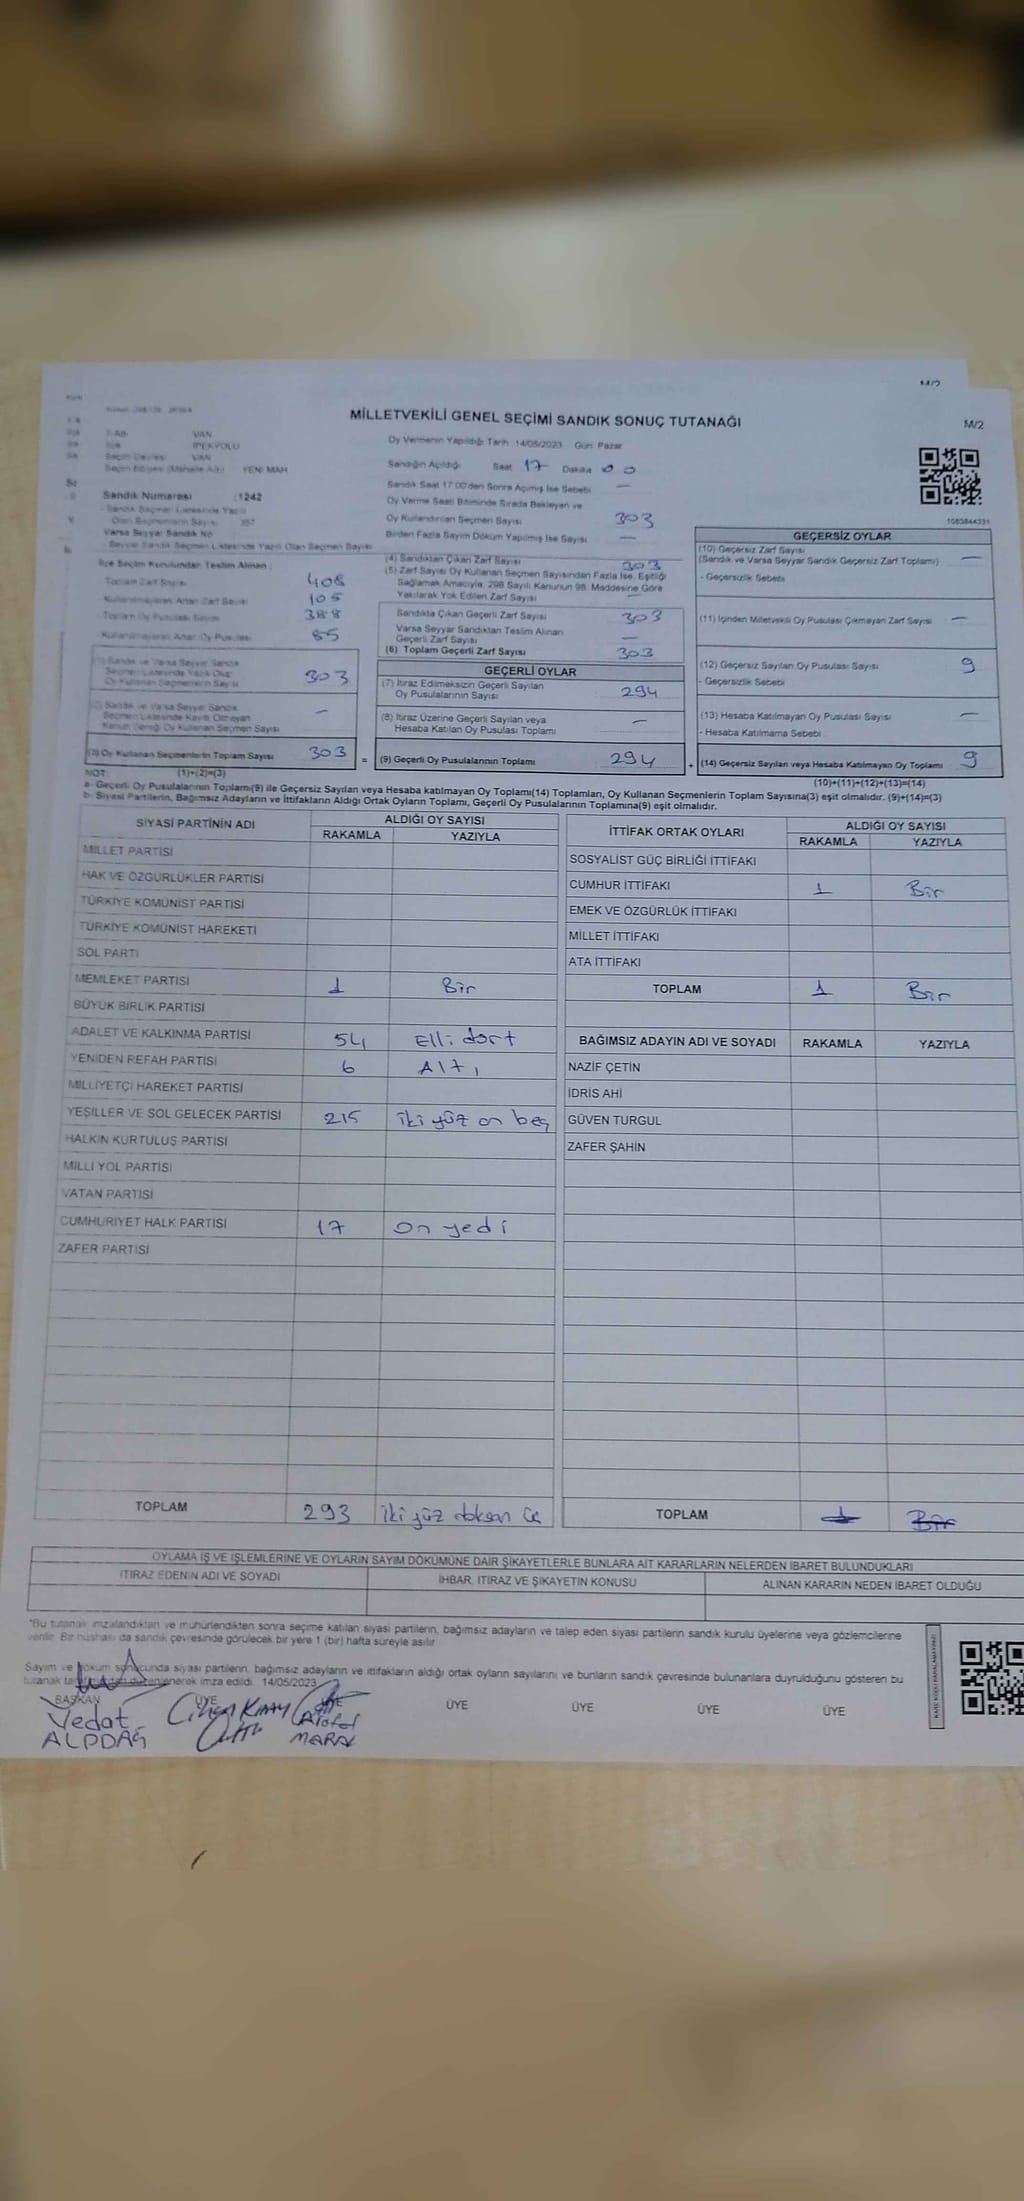 M/2
MİLLETVEKİLİ GENEL SEÇİMİ SANDIK SONUÇ TUTANAĞI
M/2
VAN
İPEKYOLU
VAN
YENİ MAH
Sandık Numarası :1242
Oy Vermenin Yapıldığı Tarih :14/05/2023 Gün: Pazar
Sandığın Açıldığı Saat 17 Dakika 00
Sandık Saat 17:00'den Sonra Açımış İse Sebebi —
Oy Verme Saati Bitiminde Sırada Bekleyen ve
Oy Kullandırılan Seçmen Sayısı 303
Birden Fazla Sayım Döküm Yapılmış İse Sayısı —
1083844331
Sandık Seçmen Listesinde Yazılı
Olan Seçmenlerin Sayısı 357
Varsa Seyyar Sandık No
Seyyar Sandık Seçmen Listesinde Yazılı Olan Seçmen Sayısı
İlçe Seçim Kurulundan Teslim Alınan :
Toplam Zarf Sayısı 408
Kullanılmayarak Artan Zarf Sayısı 105
Toplam Oy Pusulası Sayısı 388
Kullanılmayarak Artan Oy Pusulası 85
(1) Sandık ve Varsa Seyyar Sandık
Seçmen Listesinde Yazılı Olup
Oy Kullanan Seçmenlerin Sayısı 303
(2) Sandık ve Varsa Seyyar Sandık
Seçmen Listesinde Kayıtlı Olmayan
Kanun Gereği Oy Kullanan Seçmen Sayısı —
(3) Oy Kullanan Seçmenlerin Toplam Sayısı 303
(1)+(2)=(3)
(4) Sandıktan Çıkan Zarf Sayısı 303
(5) Zarf Sayısı Oy Kullanan Seçmen Sayısından Fazla İse, Eşitliği
Sağlamak Amacıyla, 298 Sayılı Kanunun 98. Maddesine Göre
Yakılarak Yok Edilen Zarf Sayısı —
Sandıkta Çıkan Geçerli Zarf Sayısı 303
Varsa Seyyar Sandıktan Teslim Alınan
Geçerli Zarf Sayısı —
(6) Toplam Geçerli Zarf Sayısı 303
GEÇERLİ OYLAR
(7) İtiraz Edilmeksizin Geçerli Sayılan
Oy Pusulalarının Sayısı 294
(8) İtiraz Üzerine Geçerli Sayılan veya
Hesaba Katılan Oy Pusulası Toplamı —
= (9) Geçerli Oy Pusulalarının Toplamı 294
GEÇERSİZ OYLAR
(10) Geçersiz Zarf Sayısı
(Sandık ve Varsa Seyyar Sandık Geçersiz Zarf Toplamı) —
- Geçersizlik Sebebi
(11) İçinden Milletvekili Oy Pusulası Çıkmayan Zarf Sayısı —
(12) Geçersiz Sayılan Oy Pusulası Sayısı 9
- Geçersizlik Sebebi
(13) Hesaba Katılmayan Oy Pusulası Sayısı —
- Hesaba Katılmama Sebebi
+ (14) Geçersiz Sayılan veya Hesaba Katılmayan Oy Toplamı 9
(10)+(11)+(12)+(13)=(14)
NOT:
a- Geçerli Oy Pusulalarının Toplamı(9) ile Geçersiz Sayılan veya Hesaba katılmayan Oy Toplamı(14) Toplamları, Oy Kullanan Seçmenlerin Toplam Sayısına(3) eşit olmalıdır. (9)+(14)=(3)
b- Siyasi Partilerin, Bağımsız Adayların ve İttifakların Aldığı Ortak Oyların Toplamı, Geçerli Oy Pusulalarının Toplamına(9) eşit olmalıdır.
SİYASİ PARTİNİN ADI ALDIĞI OY SAYISI
RAKAMLA YAZIYLA
MİLLET PARTİSİ
HAK VE ÖZGÜRLÜKLER PARTİSİ
TÜRKİYE KOMÜNİST PARTİSİ
TÜRKİYE KOMÜNİST HAREKETİ
SOL PARTİ
MEMLEKET PARTİSİ 1 Bir
BÜYÜK BİRLİK PARTİSİ
ADALET VE KALKINMA PARTİSİ 54 Elli dört
YENİDEN REFAH PARTİSİ 6 Altı
MİLLİYETÇİ HAREKET PARTİSİ
YEŞİLLER VE SOL GELECEK PARTİSİ 215 iki yüz on beş
HALKIN KURTULUŞ PARTİSİ
MİLLİ YOL PARTİSİ
VATAN PARTİSİ
CUMHURİYET HALK PARTİSİ 17 On yedi
ZAFER PARTİSİ
TOPLAM 293 iki yüz doksan üç
İTTİFAK ORTAK OYLARI ALDIĞI OY SAYISI
RAKAMLA YAZIYLA
SOSYALİST GÜÇ BİRLİĞİ İTTİFAKI
CUMHUR İTTİFAKI 1 Bir
EMEK VE ÖZGÜRLÜK İTTİFAKI
MİLLET İTTİFAKI
ATA İTTİFAKI
TOPLAM 1 Bir
BAĞIMSIZ ADAYIN ADI VE SOYADI RAKAMLA YAZIYLA
NAZİF ÇETİN
İDRİS AHİ
GÜVEN TURGUL
ZAFER ŞAHİN
TOPLAM 1 Bir
OYLAMA İŞ VE İŞLEMLERİNE VE OYLARIN SAYIM DÖKÜMÜNE DAİR ŞİKAYETLERLE BUNLARA AİT KARARLARIN NELERDEN İBARET BULUNDUKLARI
İTİRAZ EDENİN ADI VE SOYADI İHBAR, İTİRAZ VE ŞİKAYETİN KONUSU ALINAN KARARIN NEDEN İBARET OLDUĞU
*Bu tutanak imzalandıktan ve mühürlendikten sonra seçime katılan siyasi partilerin, bağımsız adayların ve talep eden siyasi partilerin sandık kurulu üyelerine veya gözlemcilerine
verilir. Bir nüshası da sandık çevresinde görülecek bir yere 1 (bir) hafta süreyle asılır.
Sayım ve döküm sonucunda siyasi partilerin, bağımsız adayların ve ittifakların aldığı ortak oyların sayılarını ve bunların sandık çevresinde bulunanlara duyrulduğunu gösteren bu
tutanak tarafımızdan düzenlenerek imza edildi. 14/05/2023
BAŞKAN ÜYE ÜYE ÜYE ÜYE ÜYE
Vedat
ALPDAĞ
MARAL